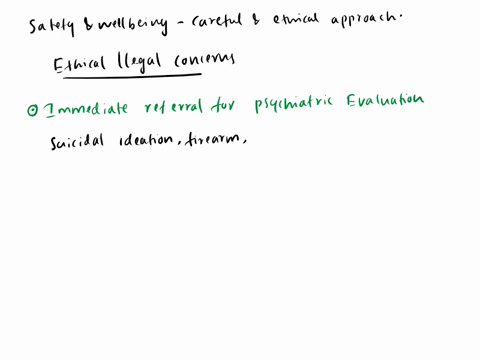 Safety & wellbeing - careful & ethical approach.
Ethical Llegal concerns
⊙ Immediate referral for psychiatric Evaluation
Suicidal ideation, firearm,